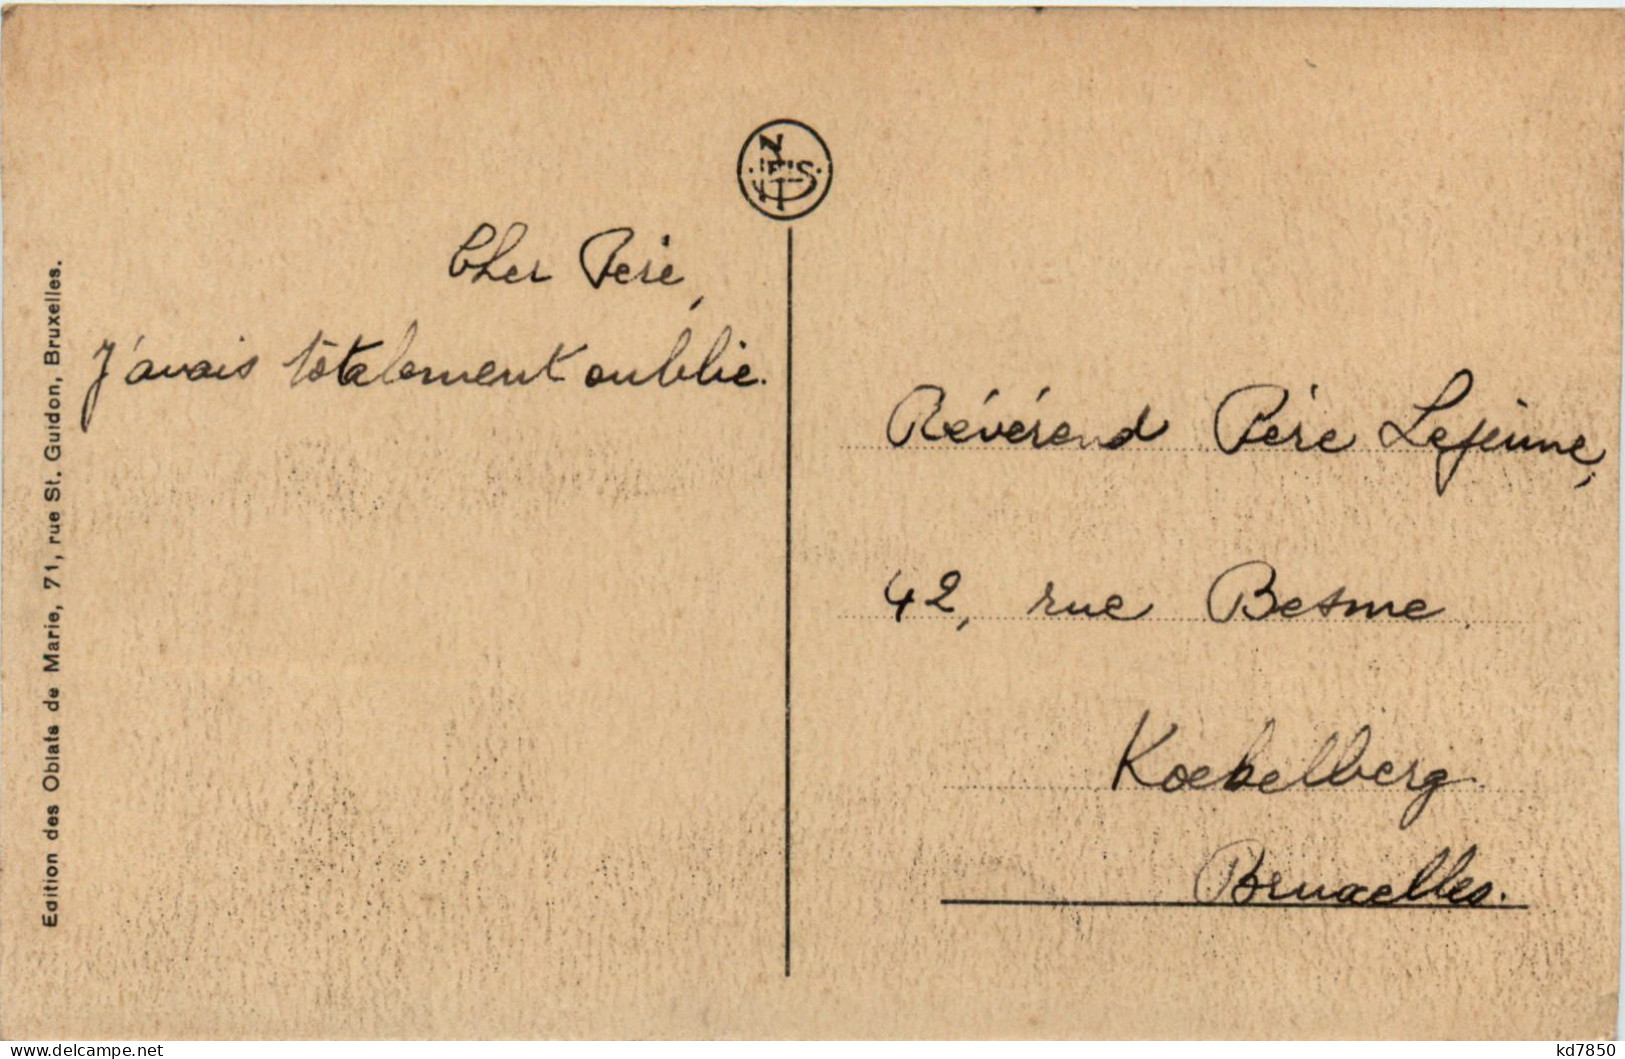 Edition des Oblats de Marie, 71, rue St. Guidon, Bruxelles.
Cher Père,
J'avais totalement oublié.
Révérend Père Lejeune,
42, rue Besme.
Koekelberg
Bruxelles.
kd7850